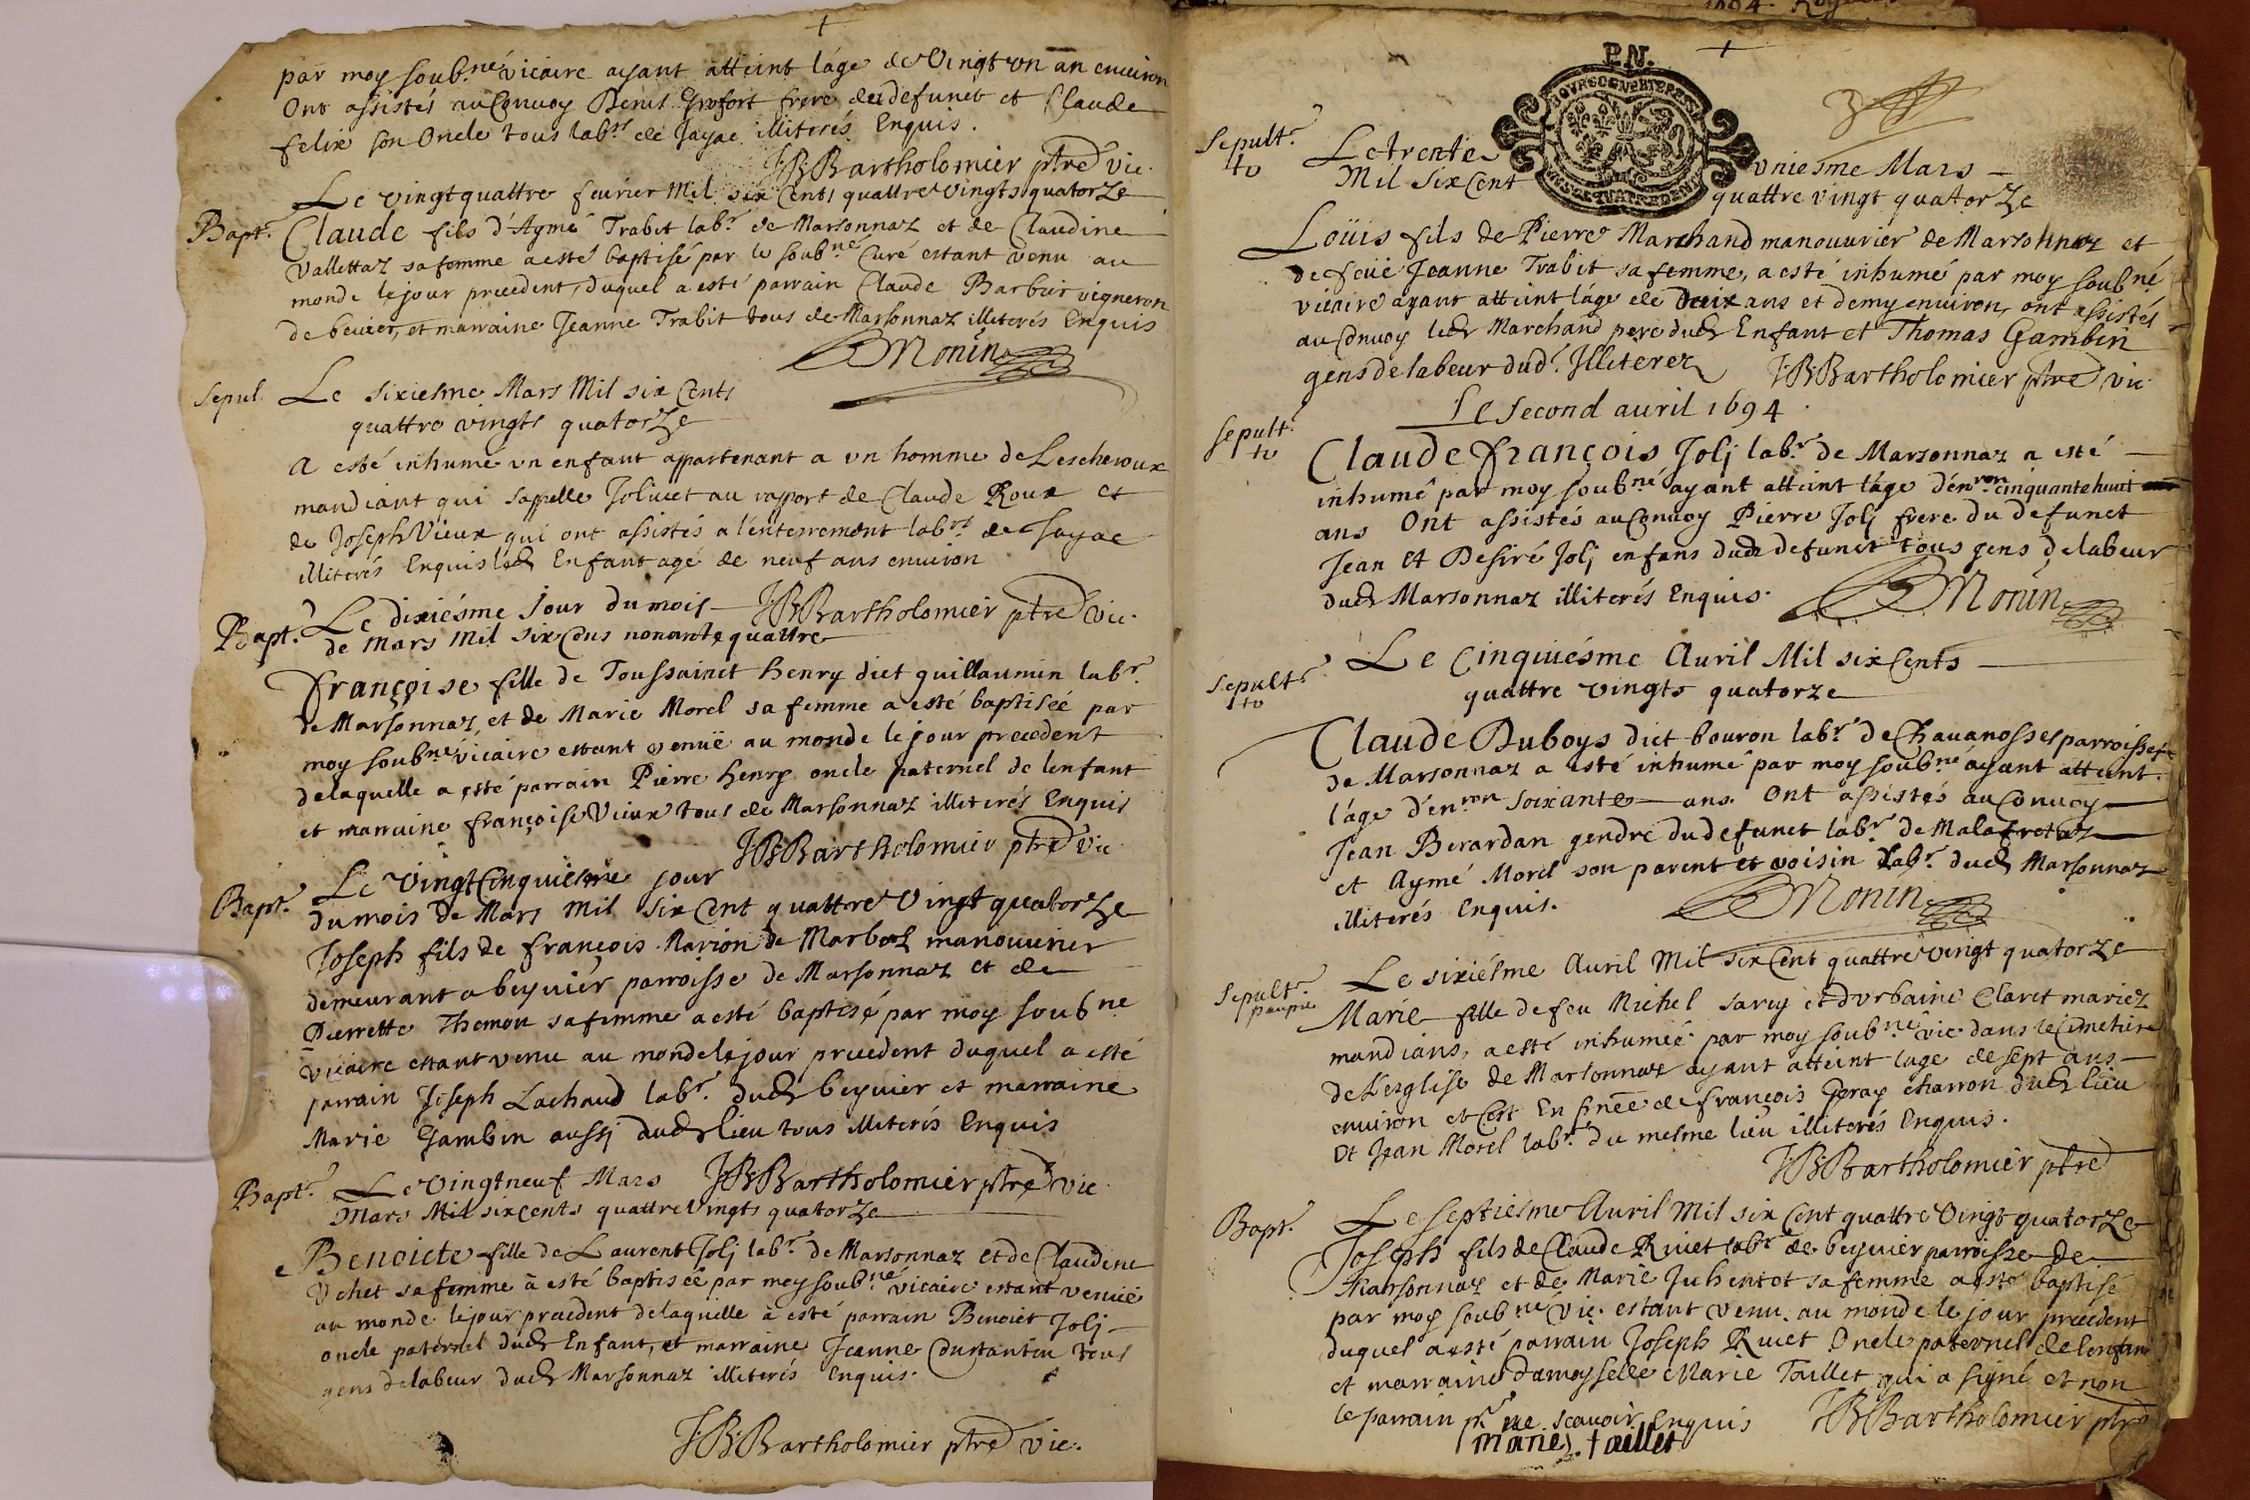 par moy soub.né vicaire ayant atteint láge de Vingt vn an enuiron
Ont assistés au Conuoy Denis Grofort frere du defunct et Claude
felix son Oncle tous lab.rs de Jayac illiterés Enquis.
JB Bartholomier ptre vic.
Bapt.
Le vingtquattre feurier Mil six Cents quattre Vingts quatorze
Claude fils d'Aymé Trabit lab.r de Marsonnaz et de Claudine
Vallettaz sa femme a esté baptisé par le soub.né Curé estant venu au
monde le jour precedent, duquel a esté parrain Claude Barbier vigneron
de beuier, et marraine Jeanne Trabit tous de Marsonnaz illiterés Enquis
Monin
Sepul.
Le sixiesme Mars Mil six Cents
quattre vingts quatorze
A esté inhumé vn enfant appartenant a vn homme de Lescheroux
mandiant qui sappelle Joliuet au rapport de Claude Roux et
de Joseph Vieux qui ont assistés a lenterrement lab.rs de Jayac
illiterés Enquis led Enfant agé de neuf ans enuiron
JB Bartholomier ptre vic.
Bapt.
Le dixiésme Jour du mois
de Mars Mil six Cens nonante quattre
françoise fille de Toussainct henry dict guillaumin lab.r
de Marsonnaz, et de Marie Morel sa femme a esté baptiséé par
moy soub.né vicaire estant venuë au monde le jour precedent
delaquelle a esté parrain Pierre henry oncle paternel de lenfant
et marraine françoise Vieux tous de Marsonnaz illiterés Enquis
JB Bartholomier ptre vic
Bapt.
Le Vingt Cinquiésme jour
du mois de Mars Mil six Cent quattre Vingt quatorze
Joseph fils de françois Marion de Marboz manouurier
demeurant a beyuiér parroisse de Marsonnaz et de
Pierrette Themon sa femme a esté baptisé par moy soub.ne
vicaire estant venu au monde le jour precedent duquel a esté
parrain Joseph Lachaud lab.r dud beyuier et marraine
Marie Gambin aussj dud lieu tous illiterés Enquis
JB Bartholomier ptre vic
Bapt.
Le Vingt neuf Mars
Mars Mil six cents quattre Vingts quatorze
Benoicte fille de Laurent Jolj lab.r de Marsonnaz et de Claudine
Vchet sa femme à esté baptiséé par moy soub.né vicaire estant venuë
au monde le jour precedent delaquelle à esté parrain Benoict Jolj
oncle paternel dud Enfant, et marraine Jeanne Durtantin tous
gens delabeur dud Marsonnaz illiterés Enquis.
JB Bartholomier ptre vic.
1694.
P.N.
Sepult.r
Le trente vniesme Mars
Mil Six Cent quattre vingt quatorze
Loüis fils de Pierre Marchand manouurier de Marsonnaz et
de feuë Jeanne Trabit sa femme, a esté inhumé par moy soub.né
vicaire ayant atteint láge de deux ans et demy enuiron, ont assistés
au Conuoy led Marchand pere dud Enfant et Thomas Gambin
gens de labeur dud. Illiterez JB Bartholomier ptre vic
Le Second auril 1694.
Sepult.
Claude françois Jolj lab.r de Marsonnaz a esté
inhumé par moy soub.né ayant atteint láge d'enron cinquante huict
ans Ont assistés au Conuoy Pierre Jolj frere du defunct
Jean Et Desiré Jolj enfans dud defunct tous gens delabeur
dud Marsonnaz illiterés Enquis.
Monin
Sepult.r
Le Cinquiésme Auril Mil six Cents
quattre vingts quatorze
Claude Duboys dict bouron lab.r de Chauanosses parroisse
de Marsonnaz a esté inhumé par moy soub.né áyant atteint
láge d'enron soixante ans. Ont assistés au Conuoy
Jean Berardan gendre du defunct lab.r de Malafretaz
et Aymé Morel son parent et voisin lab.r dud Marsonnaz
illiterés Enquis.
Monin
Sepult.r
Le sixiésme Auril Mil six Cent quattre vingt quatorze
Marie fille de feu Michel Saruy et d'vrbaine Claret mariez
mandians, a esté inhumée par moy soub.né vic dans le Cimetiere
de L'esglise de Marsonnaz ayant atteint lage de sept ans
enuiron et Cest En pnce de françois Geray charron dud lieu
Et Jean Morel lab.r du mesme lieu illiterés Enquis.
JB Bartholomier ptre
Bapt.
Le septiésme Auril Mil six Cent quattre Vingt quatorze
Joseph fils de Claude Riuet lab.r de beyuier parroisse de
Marsonnaz et de Marie Juhentot sa femme a esté baptisé
par moy soub.né vic. estant venu au monde le jour precedent
duquel a esté parrain Joseph Riuet Oncle paternel de lenfant
et marraine Damoyselle Marie Taillet qui a signé et non
le parrain pr ne scauoir Enquis JB Bartholomier ptre
marie taillet